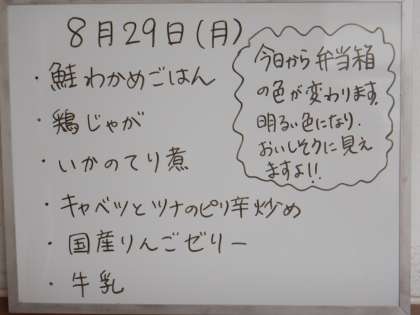 8月29日(月)
・鮭わかめごはん
・鶏じゃが
・いかのてり煮
・キャベツとツナのピリ辛炒め
・国産りんごゼリー
・牛乳
今日から弁当箱
の色が変わります。
明るい色になり、
おいしそうに見え
ますよ!!